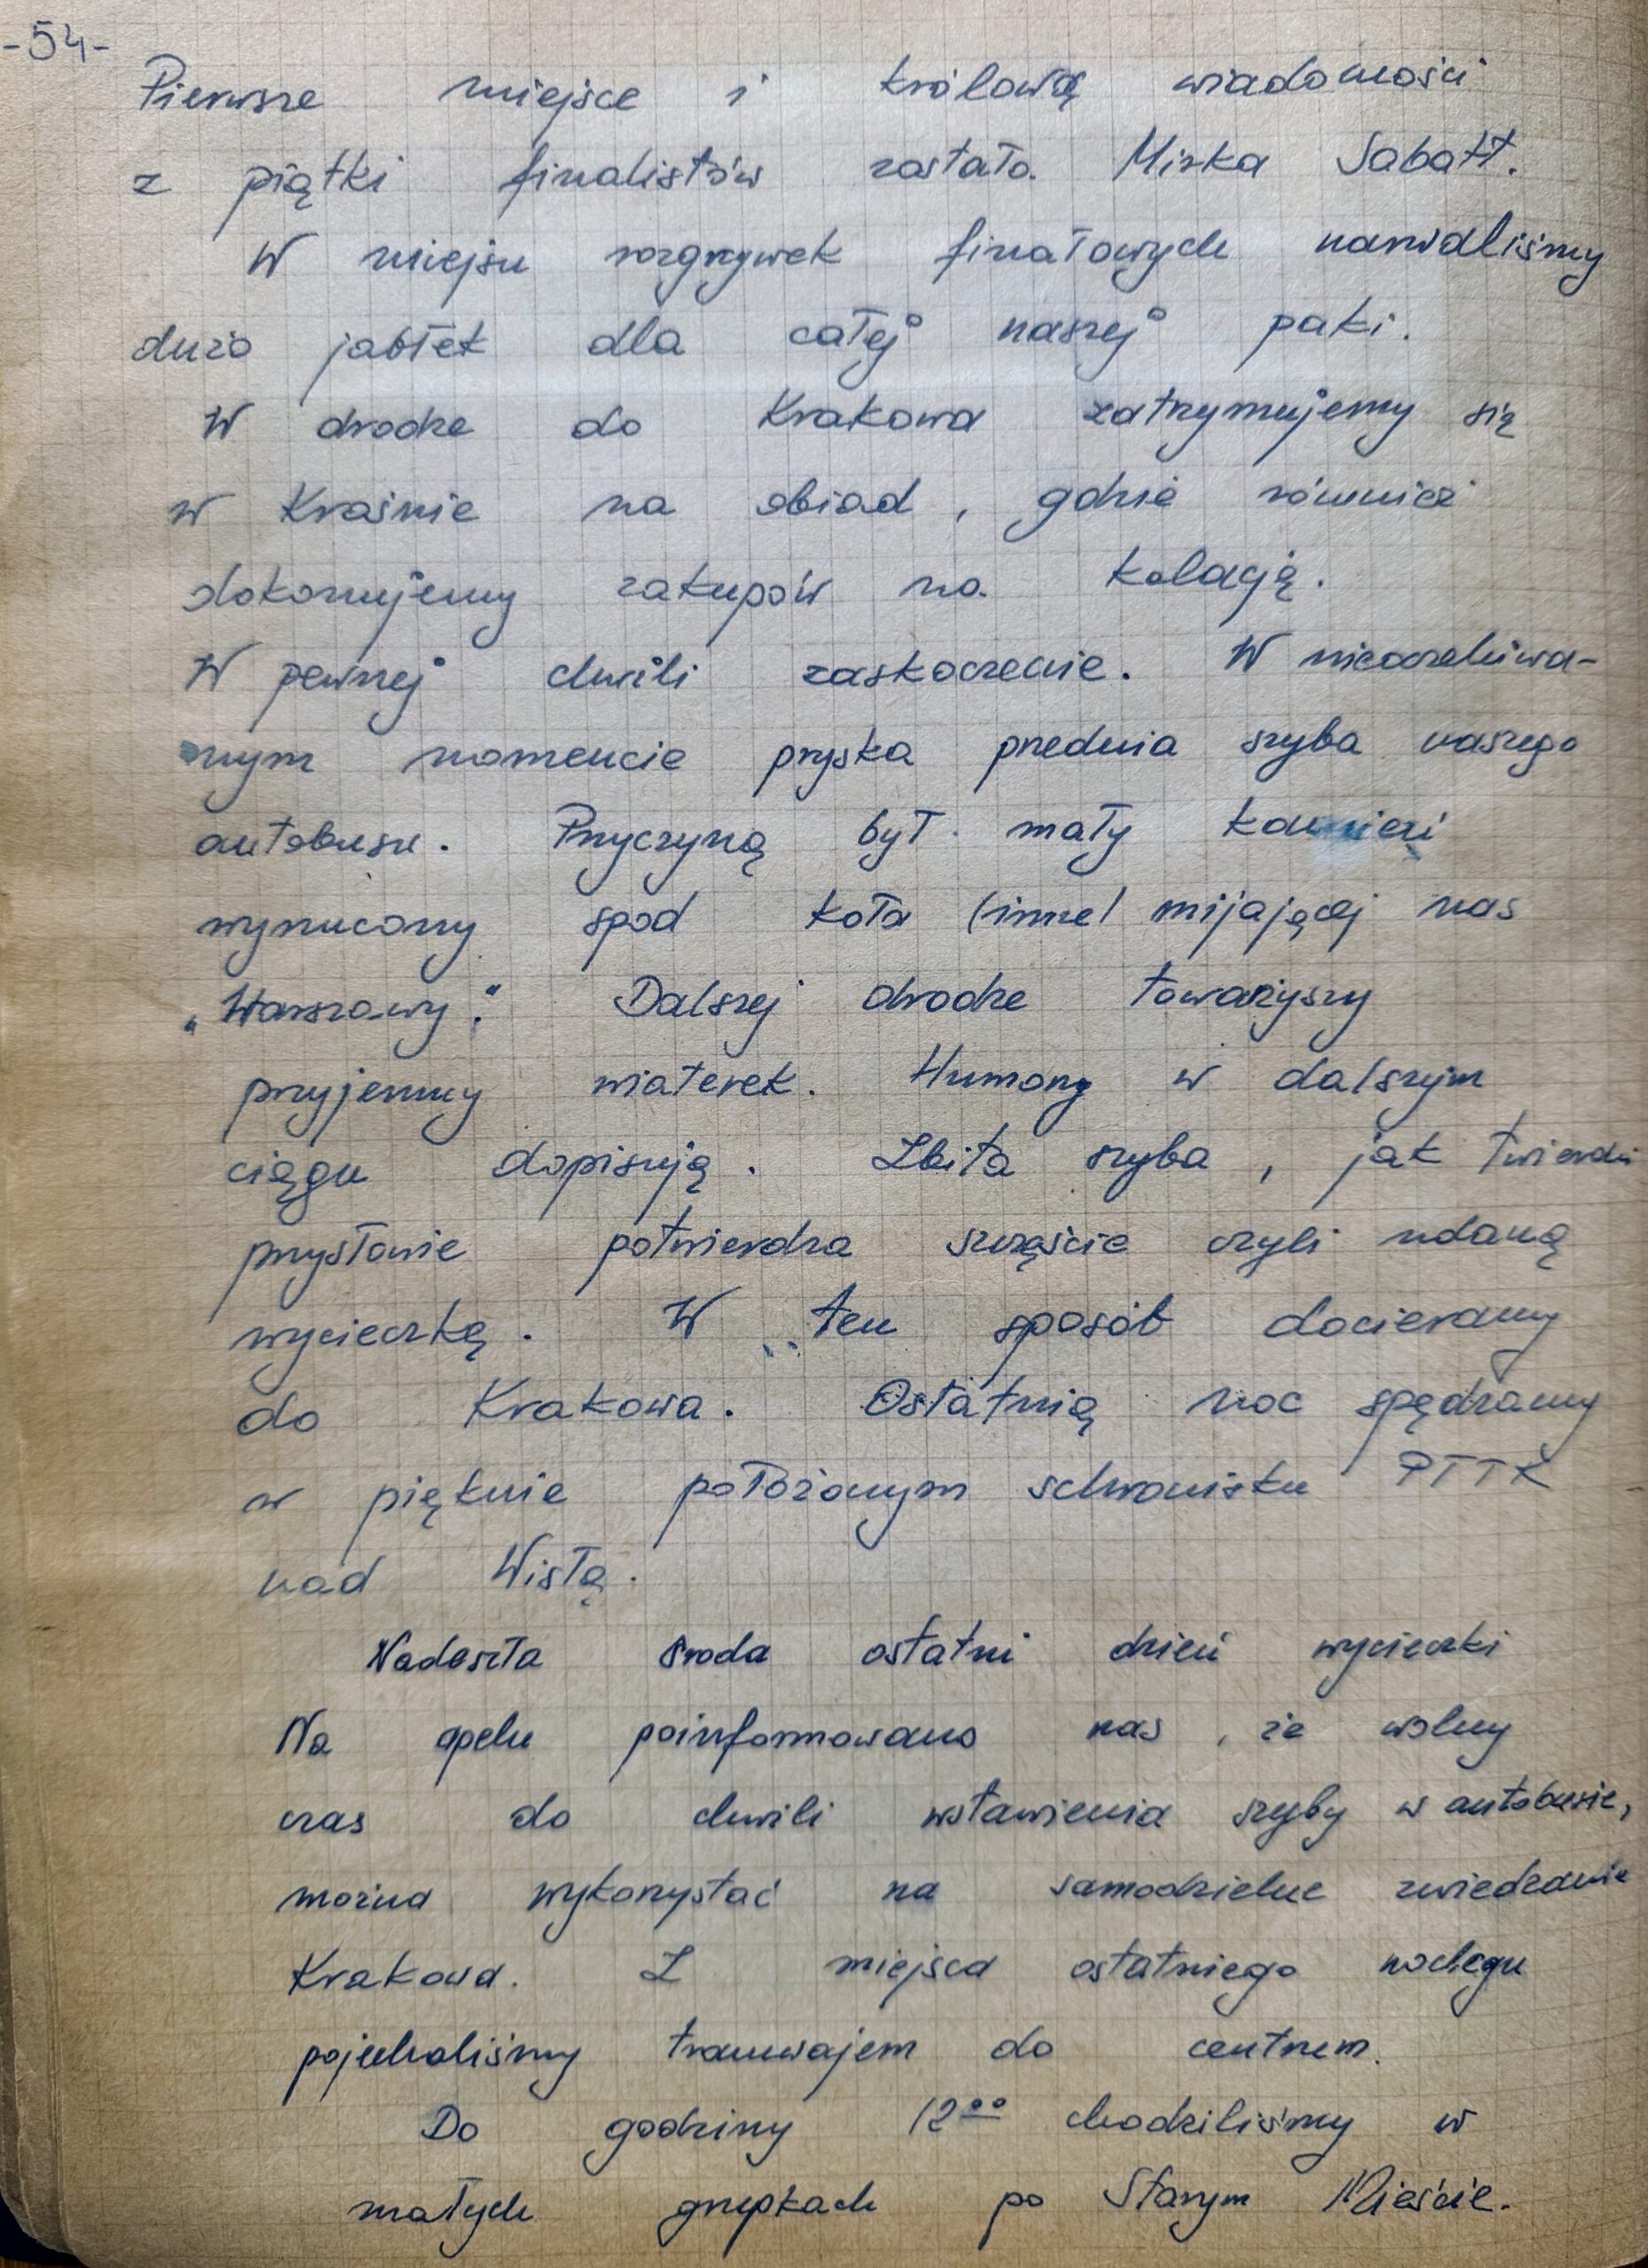 -54-
Pierwsze miejsce i królową wiadomości
z piątki finalistów została Mirka Sabatt.
W miejscu rozgrywek finałowych narwaliśmy
dużo jabłek dla całej naszej paki.
W drodze do Krakowa zatrzymujemy się
w Krośnie na obiad, gdzie również
dokonujemy zakupów na kolację.
W pewnej chwili zaskoczenie. W nieoczekiwa-
nym momencie pryska przednia szyba naszego
autobusu. Przyczyną był mały kamień
wyrzucony spod koła mijającej nas
„Warszawy". Dalszej drodze towarzyszy
przyjemny wiaterek. Humory w dalszym
ciągu dopisują. Zbita szyba, jak twierdzi
przysłowie potwierdza szczęście czyli udaną
wycieczkę. W ten sposób docieramy
do Krakowa. Ostatnią noc spędzamy
w pięknie położonym schronisku PTTK
nad Wisłą.
Nadeszła środa ostatni dzień wycieczki
Na apelu poinformowano nas, że wolny
czas do chwili wstawienia szyby w autobusie,
można wykorzystać na samodzielne zwiedzanie
Krakowa. Z miejsca ostatniego noclegu
pojechaliśmy tramwajem do centrum.
Do godziny 12⁰⁰ chodziliśmy w
małych grupkach po Starym Mieście.